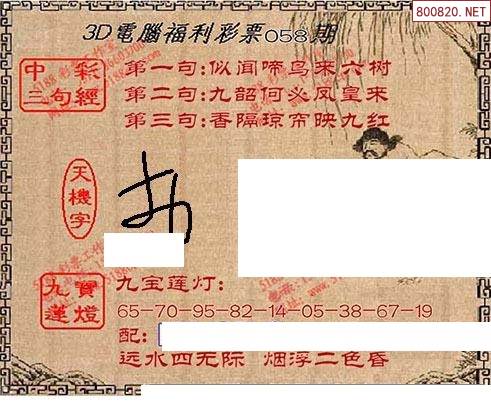 800820.NET
3D電腦福利彩票058期
中彩三句經
第一句:似闻啼鸟来六树
第二句:九韶何必凤皇来
第三句:香隔琼帘映九红
天機字
九寶蓮燈
九宝莲灯:
65-70-95-82-14-05-38-67-19
配:
远水四无际 烟浮二色昏